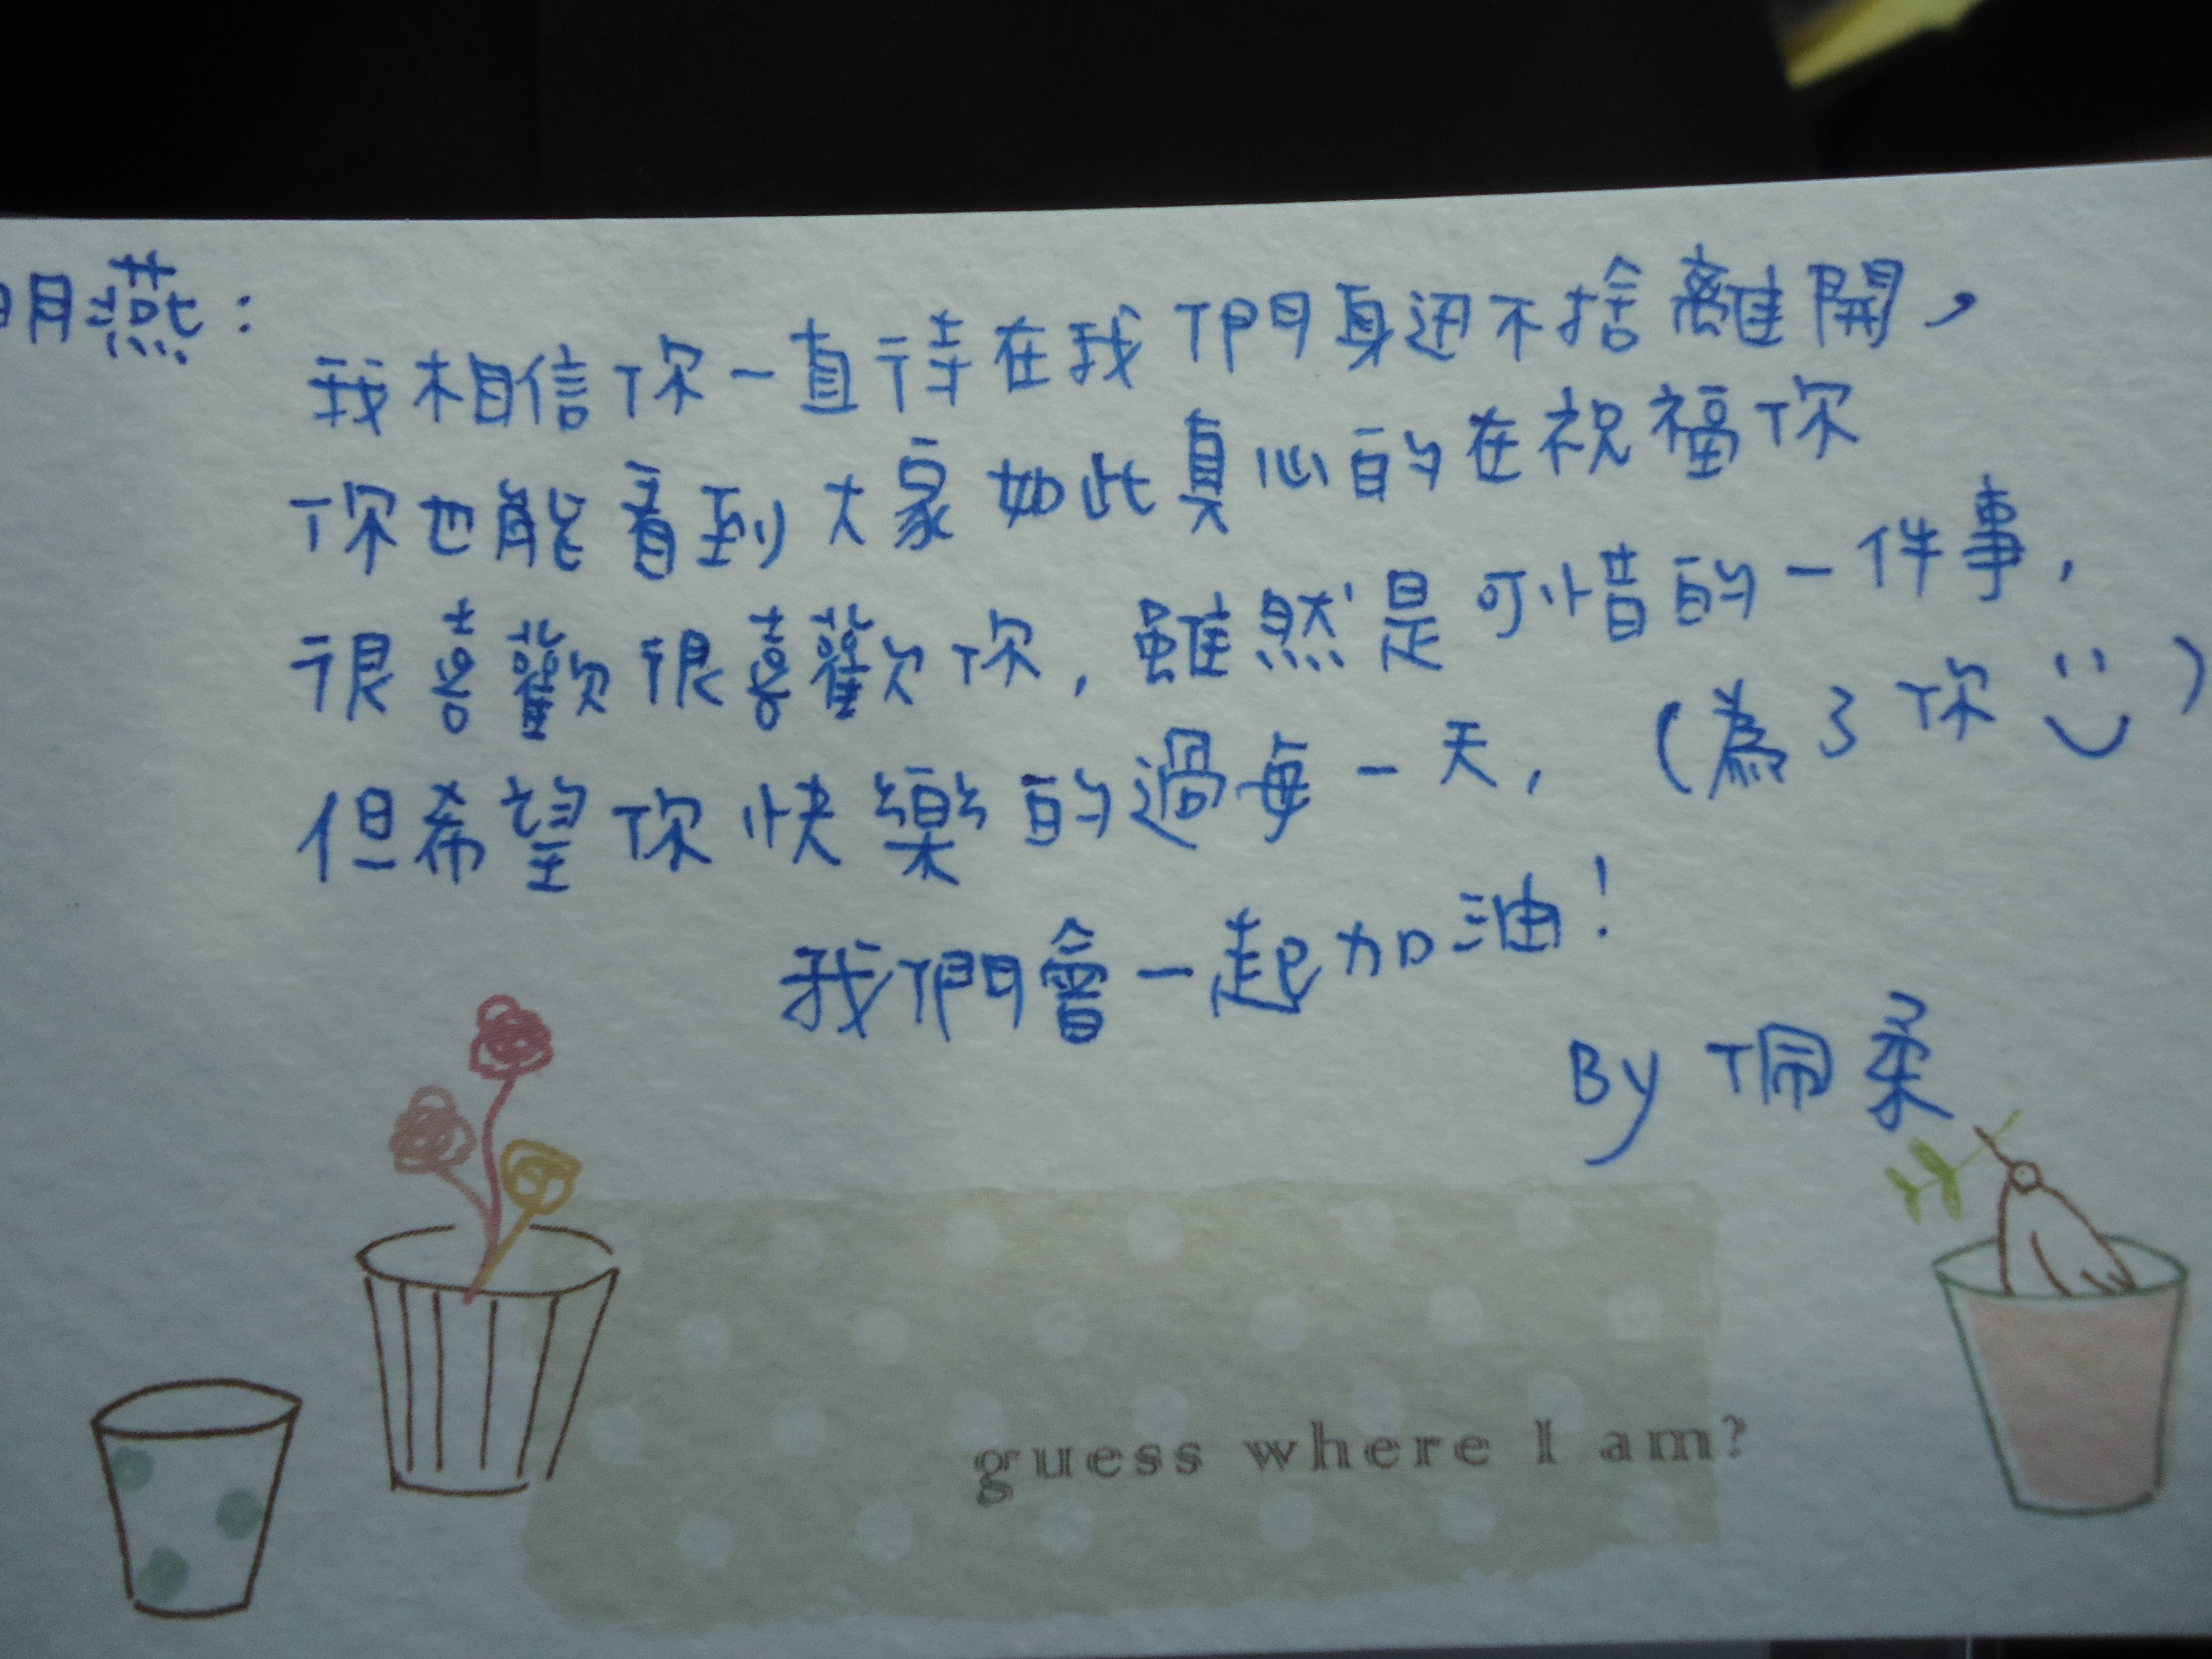 明燕：
我相信你一直待在我們身邊不捨離開，
你也能看到大家如此真心的在祝福你
很喜歡很喜歡你，雖然是可惜的一件事，
但希望你快樂的過每一天，（為了你 ）
我們會一起加油！
By 佩柔
guess where I am?